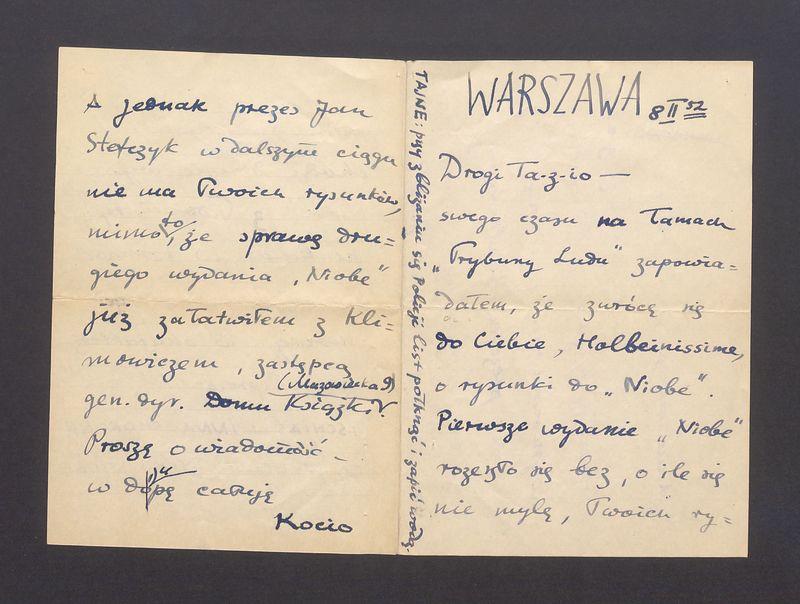 WARSZAWA 8 II 52
Drogi Ta-z-io —
swego czasu na łamach
"Trybuny Ludu" zapowia=
dałem, że zwrócę się
do Ciebie, Holbeinissime,
o rysunki do "Niobe".
Pierwsze wydanie "Niobe"
rozeszło się bez, o ile się
nie mylę, Twoich ry=
TAJNE: przy zbliżaniu się Policji list połknąć i zapić wodą.
A jednak prezes Jan
Stefczyk w dalszym ciągu
nie ma Twoich rysunków,
mimo to, że sprawę dru-
giego wydania "Niobe"
już załatwiłem z Kli-
mowiczem, zastępcą
(Mazowiecka 9)
gen. dyr. Domu Książki.
Proszę o wiadomość —
"u"
w dópę całuję
Kocio